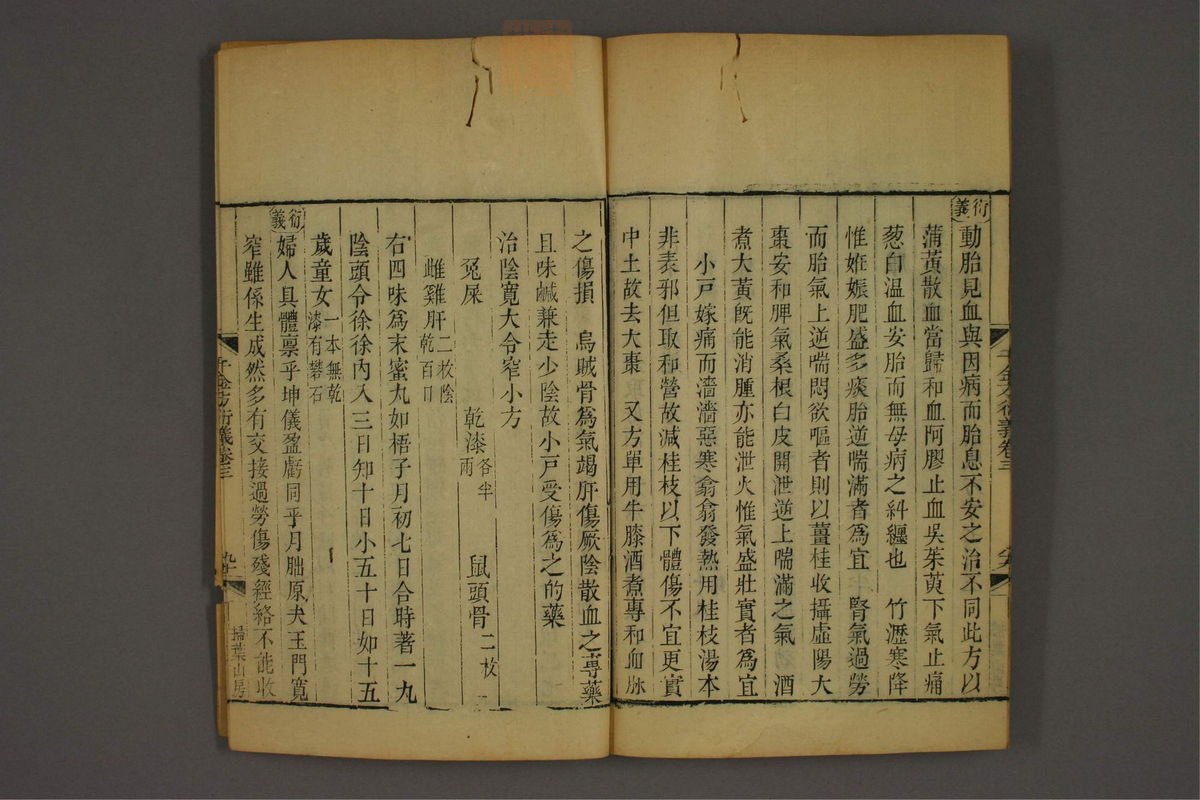 衍義
動胎見血與因病而胎息不安之治不同此方以
蒲黃散血當歸和血阿膠止血吳茱萸下氣止痛
葱白温血安胎而無母病之糾纏也　竹瀝寒降
惟姙娠肥盛多痰胎逆喘滿者為宜　腎氣過勞
而胎氣上逆喘悶欲嘔者則以薑桂收攝虛陽大
棗安和脾氣桑根白皮開泄逆上喘滿之氣　酒
煮大黃既能消腫亦能泄火惟氣盛壯實者為宜
小戸嫁痛而濇濇惡寒翕翕發熱用桂枝湯本
非表邪但取和營故減桂枝以下體傷不宜更實
中土故去大棗　又方單用牛膝酒煮專和血脉
千金方衍義卷三
之傷損　烏賊骨為氣竭肝傷厥陰散血之專藥
且味鹹兼走少陰故小戸受傷為之的藥
治陰寛大令窄小方
兔屎　乾漆各半兩　鼠頭骨二枚
雌雞肝二枚陰乾百日
右四味為末蜜丸如梧子月初七日合時著一丸
陰頭令徐徐內入三日知十日小五十日如十五
歲童女一本無乾漆有礬石
衍義
婦人具體禀乎坤儀盈虧同乎月朏原夫玉門寛
窄雖係生成然多有交接過勞傷殘經絡不能收
千金方衍義卷三
掃葉山房